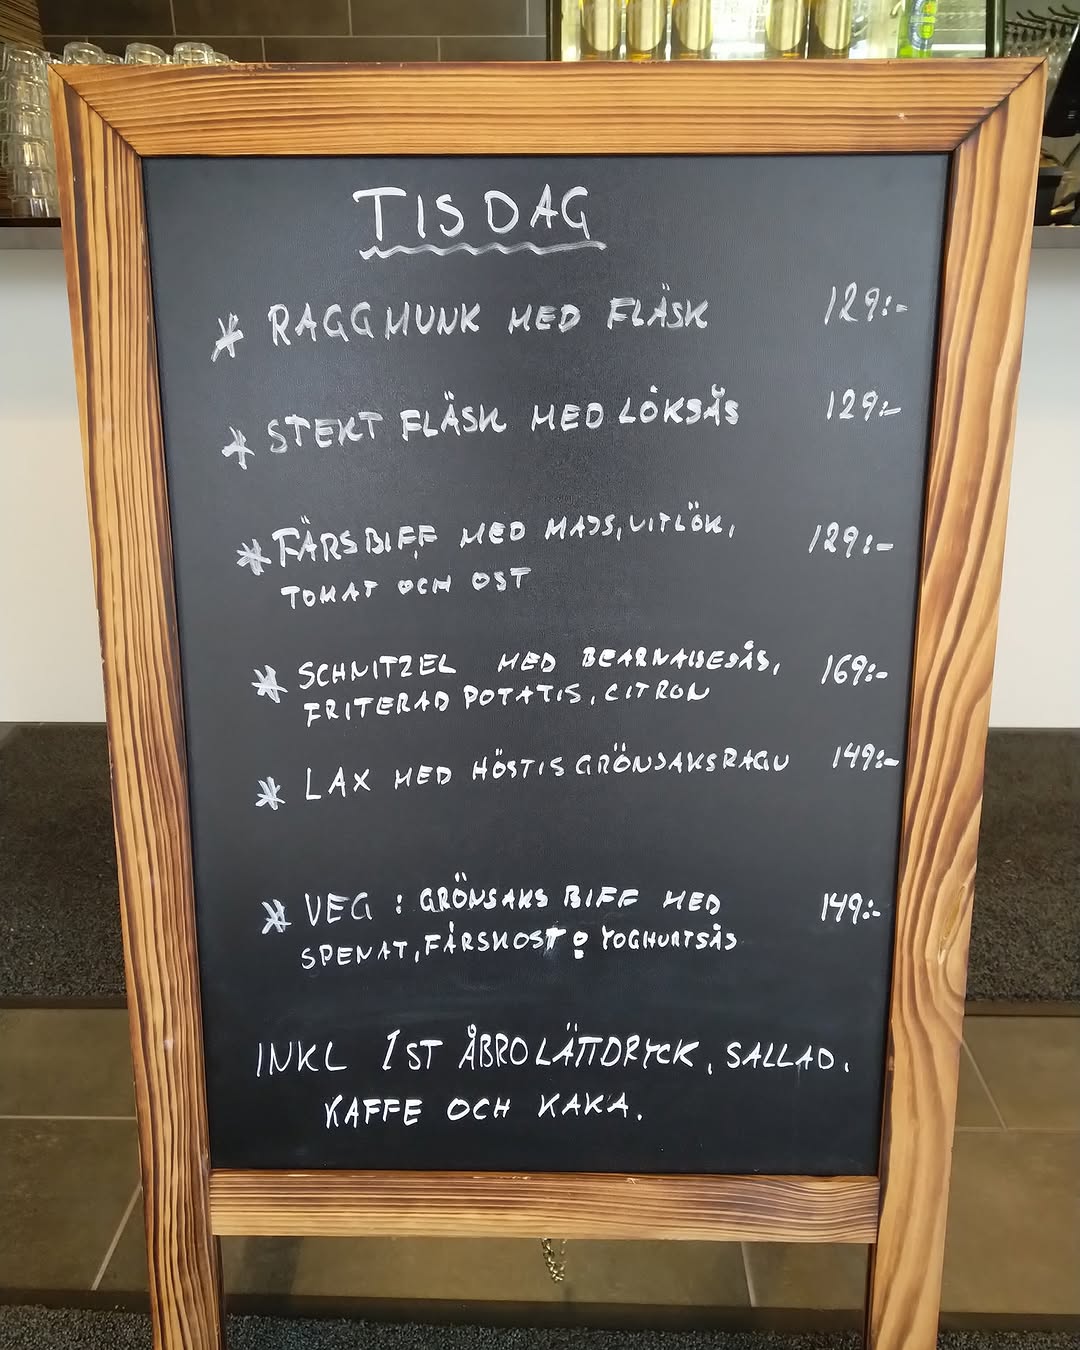 TISDAG
* RAGGMUNK MED FLÄSK 129:-
* STEKT FLÄSK MED LÖKSÅS 129:-
* FÄRSBIFF MED MAJS, VITLÖK, 129:-
TOMAT OCH OST
* SCHNITZEL MED BEARNAISESÅS, 169:-
FRITERAD POTATIS, CITRON
* LAX MED HÖSTIS GRÖNSAKSRAGU 149:-
* VEG : GRÖNSAKS BIFF MED 149:-
SPENAT, FÄRSKOST o YOGHURTSÅS
INKL 1ST ÅBRO LÄTTDRYCK, SALLAD,
KAFFE OCH KAKA.